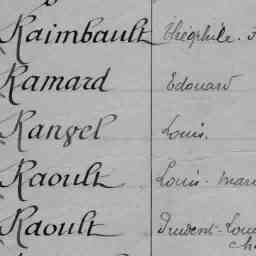 Raimbault Théophile.
Ramard Edouard
Rangel Louis.
Raoult Louis-Mari
Raoult Prudent-Lou